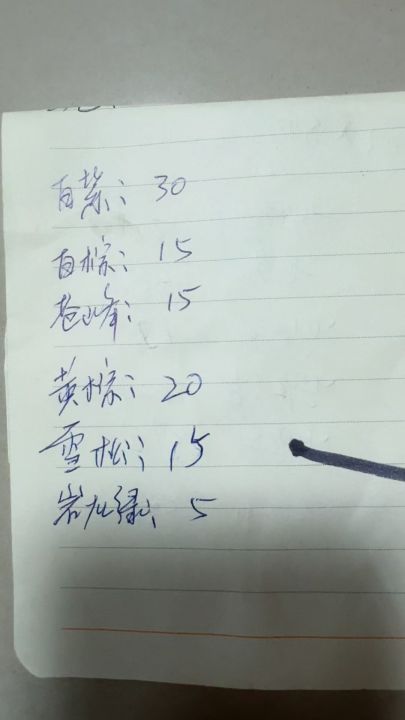 白紫：30
白棕：15
苍峰：15
黄棕：20
雪松：15
岩九绿：5